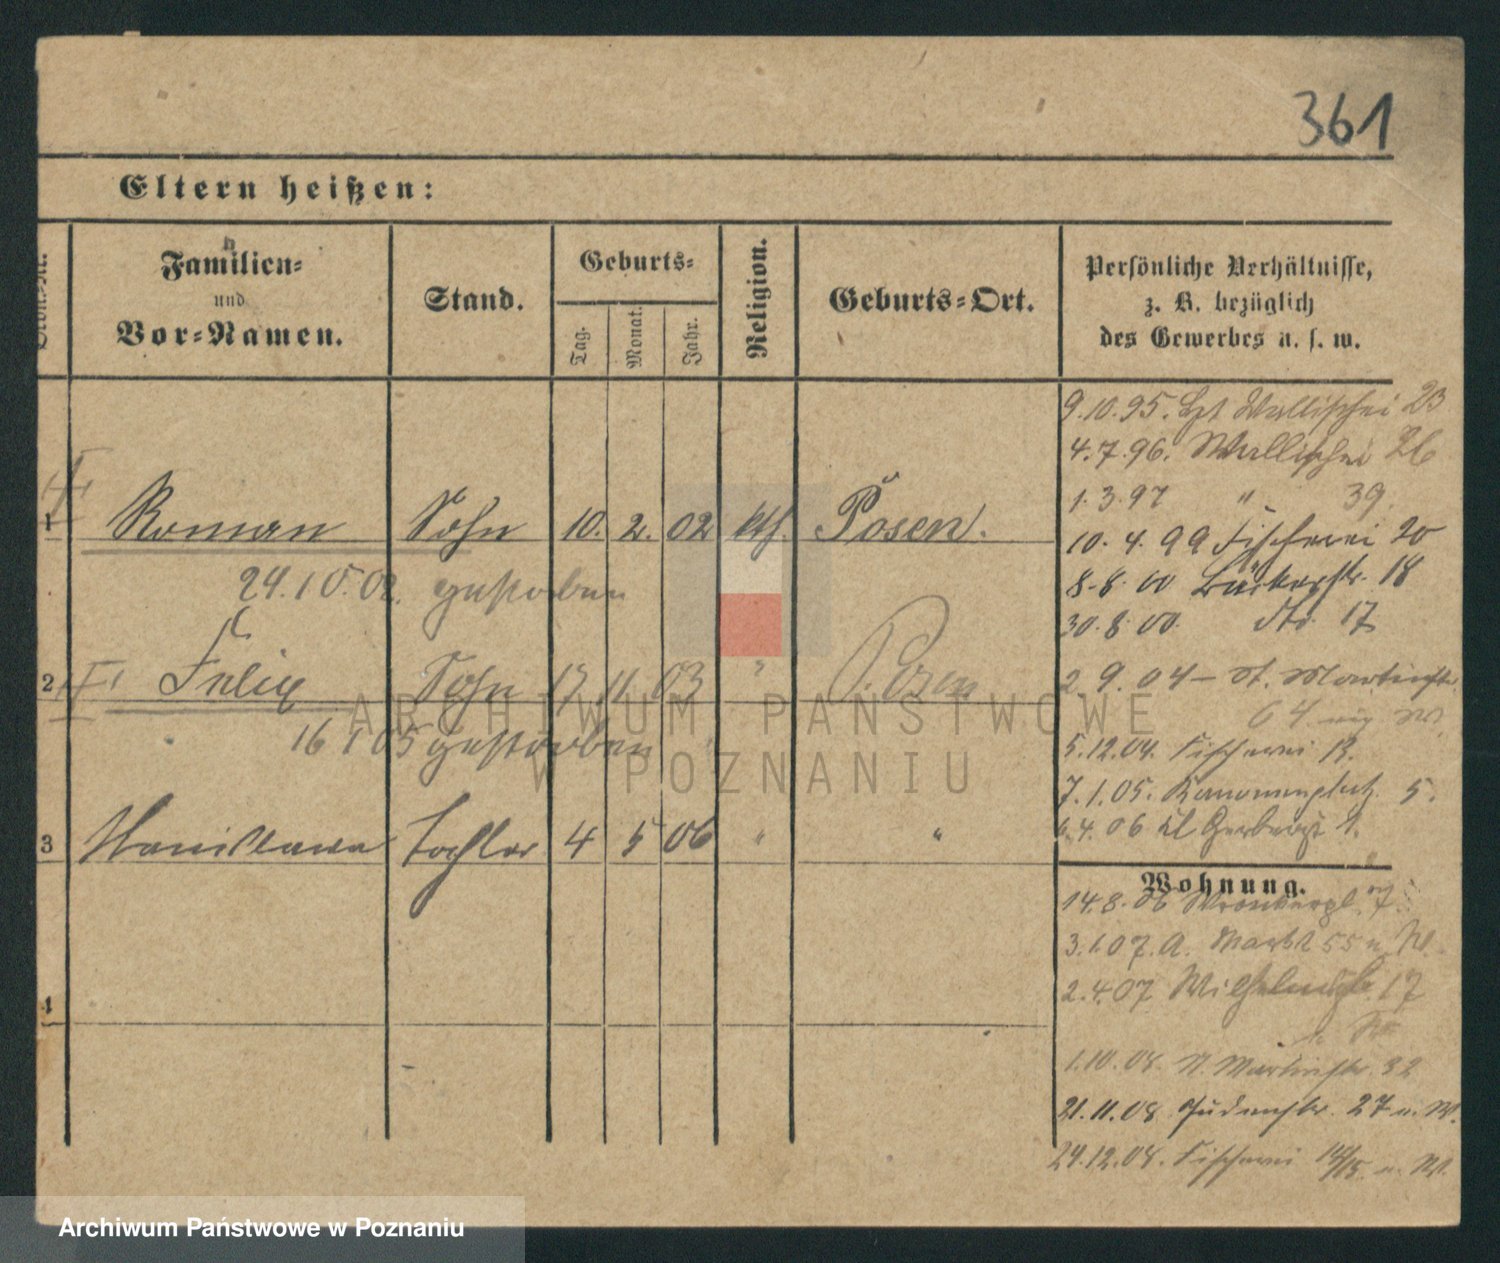 361
Eltern heißen:
Familien-
und
Vor-Namen.
Stand.
Geburts-
Tag.
Monat.
Jahr.
Religion.
Geburts-Ort.
Persönliche Verhältnisse,
z. B. bezüglich
des Gewerbes u. s. w.
9.10.95. Wallischei 23
4.7.96. Wallischei 26
1.3.97 " 39.
1 Roman Sohn 10. 2. 02 kth. Posen.
10.4.99 Fischerei 20
24.10.02. gestorben
8.8.00 Bäckerstr. 18
30.8.00. dto 17
2 Felix Sohn 17 11 03 " Posen
2.9.04 – St. Martinstr.
64
16 1 05 gestorben
5.12.04. Fischerei 13.
7.1.05. Kanonenplatz 5.
3 Stanislawa Tochter 4 5 06 " "
6.4.06 kl Gerberst 1.
Wohnung.
14.8.06 Wronkerpl. 7
3.1.07. A. Markt 55 u. W.
2.4.07 Wilhelmspl. 17
4
1.10.08. St. Martinstr. 32
21.11.08 Judenstr. 27 u. W.
24.12.08. Fischerei 14/15 u. W.
ARCHIWUM PAŃSTWOWE
W POZNANIU
Archiwum Państwowe w Poznaniu